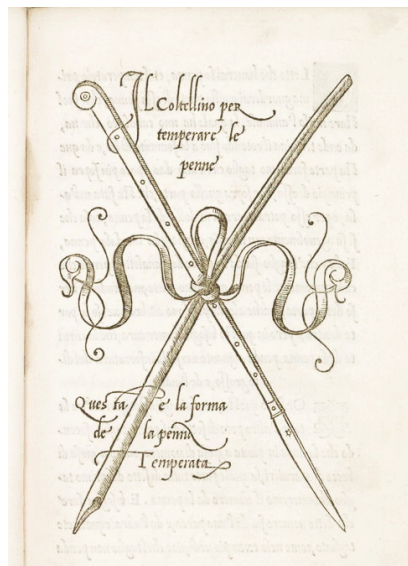 Il Coltellino per
temperare le
penne
Questa e la forma
de la penna
Temperata